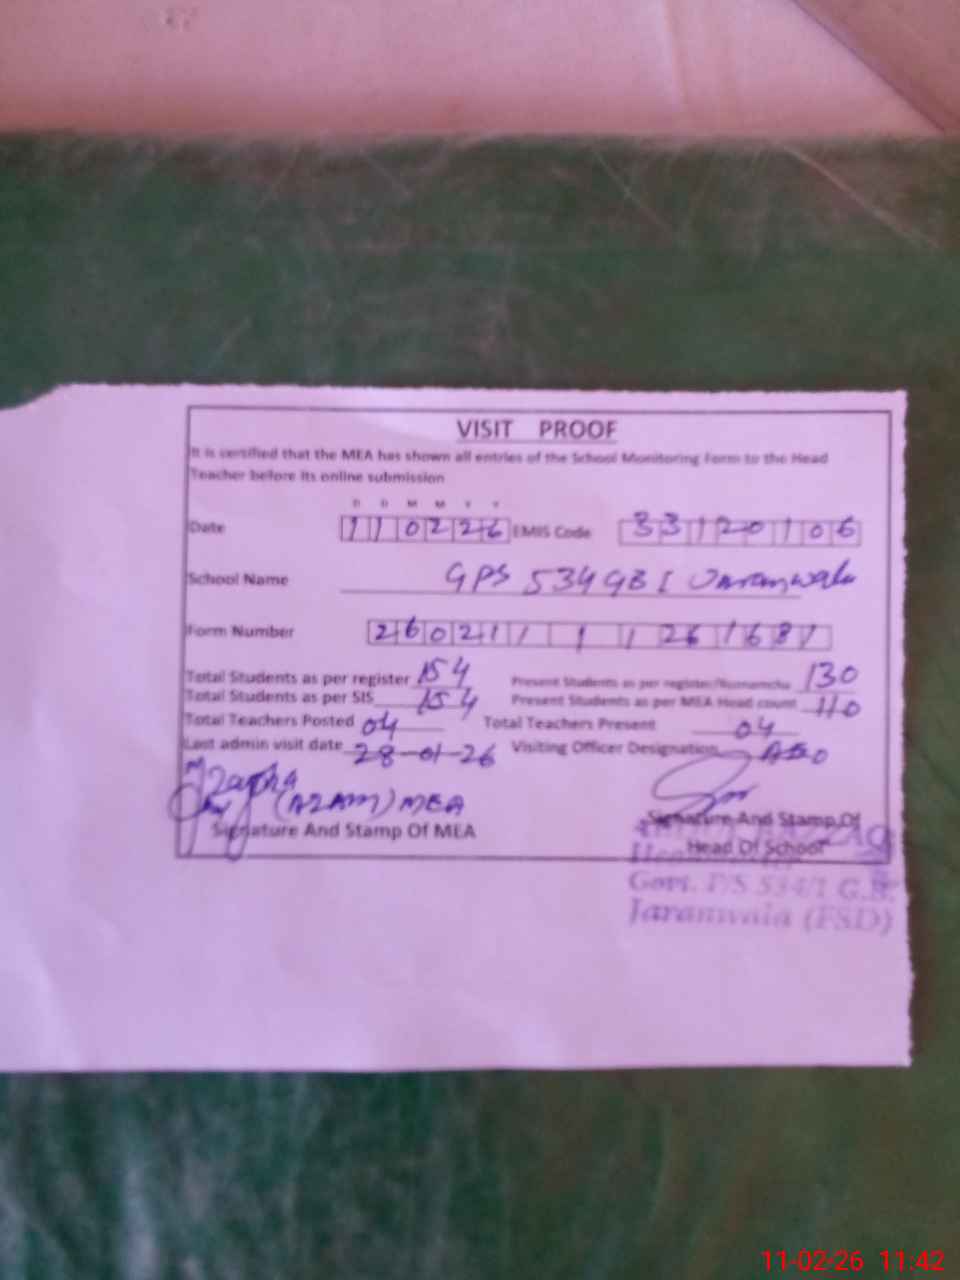 VISIT PROOF
It is certified that the MEA has shown all entries of the School Monitoring Form to the Head
Teacher before its online submission
D D M M Y Y
Date 110226 EMIS Code 33120106
School Name GPS 534 GB I Jaranwala
Form Number
Total Students as per register 154 Present Students as per register/Roznamcha 130
Total Students as per SIS 154 Present Students as per MEA Head count 110
Total Teachers Posted 04 Total Teachers Present 04
Last admin visit date 28-01-26 Visiting Officer Designation AEO
(AZAM) MEA
Signature And Stamp Of MEA
Signature And Stamp Of
Head Of School
Govt. P/S 534/1 G.B.
Jaranwala (FSD)
11-02-26 11:42